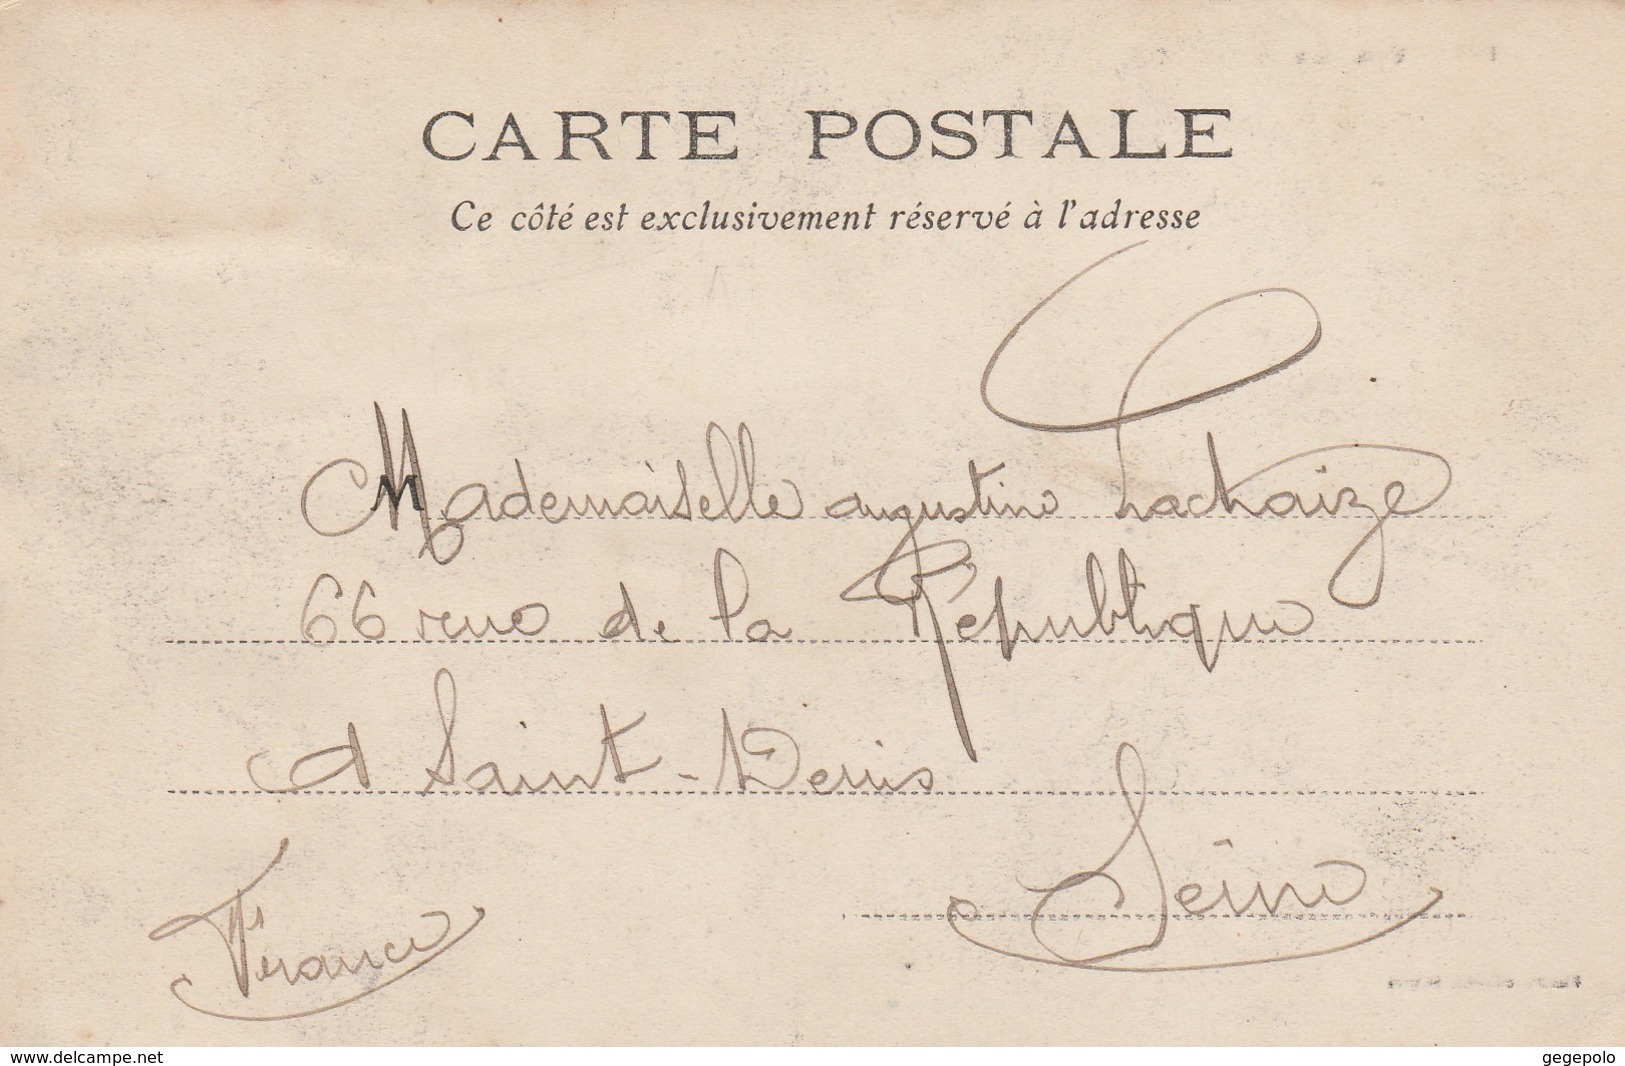 CARTE POSTALE
Ce côté est exclusivement réservé à l'adresse
Mademoiselle augustine Lachaize
66 rue de la République
à Saint-Denis
Seine
France
www.delcampe.net
gegepolo